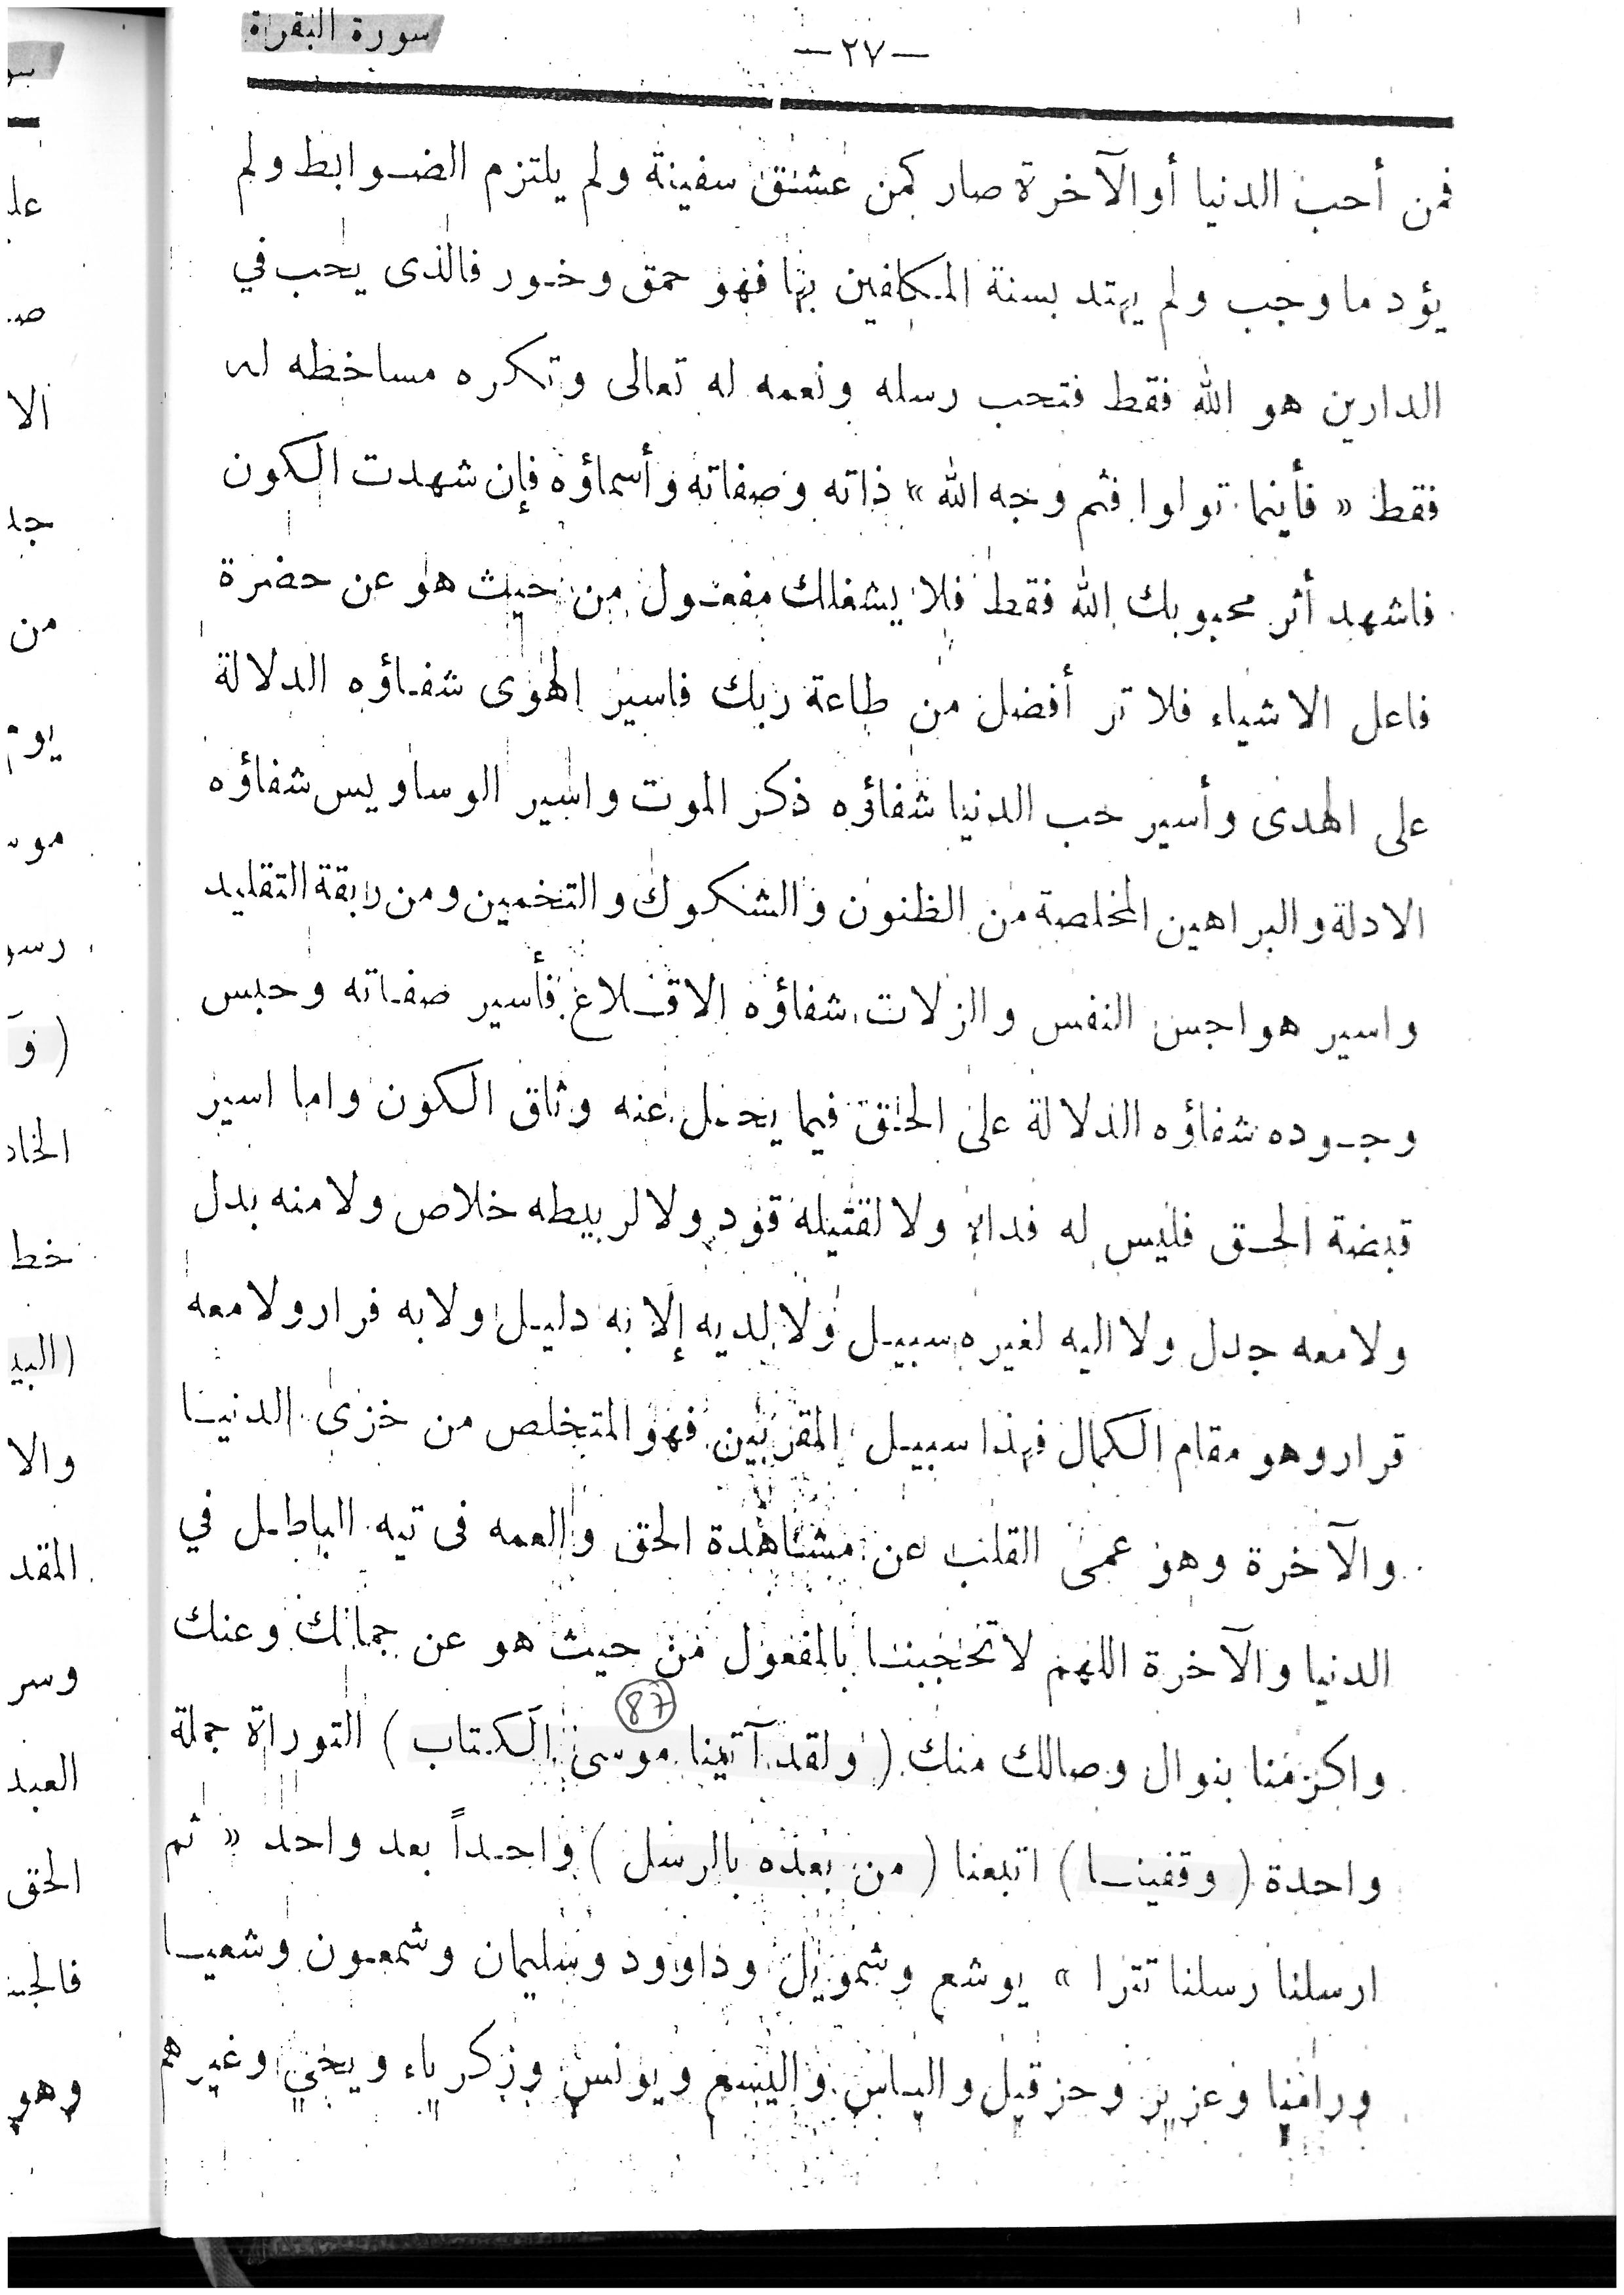 سورة البقراة
— ٢٧ —
فمن أحب الدنيا أو الآخرة صار كمن عشق سفينة ولم يلتزم الضوابط ولم
يؤد ما وجب ولم يهتد بسنة المكلفين بها فهو حمق وخور فالذى يحب في
الدارين هو الله فقط فتحب رسله ونعمه له تعالى وتكره مساخطه له
فقط « فأينما تولوا فثم وجه الله » ذاته وصفاته وأسماؤه فإن شهدت الكون
فاشهد أثر محبوبك الله فقط فلا يشغلك مفعول من حيث هو عن حضرة
فاعل الاشياء فلا تر أفضل من طاعة ربك فاسير الهوى شفاؤه الدلالة
على الهدى وأسير حب الدنيا شفاؤه ذكر الموت واسير الوساويس شفاؤه
الادلة والبراهين المخلصة من الظنون والشكوك والتخمين ومن رابقة التقليد
واسير هواجس النفس والزلات شفاؤه الاقلاع فأسير صفاته وحبس
وجوده شفاؤه الدلالة على الحق فيما يحل عنه وثاق الكون واما اسير
قبضة الحق فليس له فداء ولا لقتيله قود ولا لربيطه خلاص ولا منه بدل
ولا معه جدل ولا اليه لغيره سبيل ولا لديه إلا به دليل ولا به فرار ولا معه
قرار وهو مقام الكمال فهذا سبيل المقربين فهو المتخلص من خزى الدنيا
والآخرة وهو عمى القلب عن مشاهدة الحق والعمه فى تيه الباطل في
الدنيا والآخرة اللهم لا تحجبنا بالمفعول من حيث هو عن جمالك وعنك
87
واكرمنا بنوال وصالك منك ( ولقد آتينا موسى الكتاب ) التوراة جملة
واحدة ( وقفينا ) اتبعنا ( من بعده بالرسل ) واحداً بعد واحد « ثم
ارسلنا رسلنا تترا » يوشع وشمويل وداوود وسليمان وشمعون وشعيا
ورامنيا وعزير وحزقيل والياس واليسع ويونس وزكرياء ويحيى وغيرهم